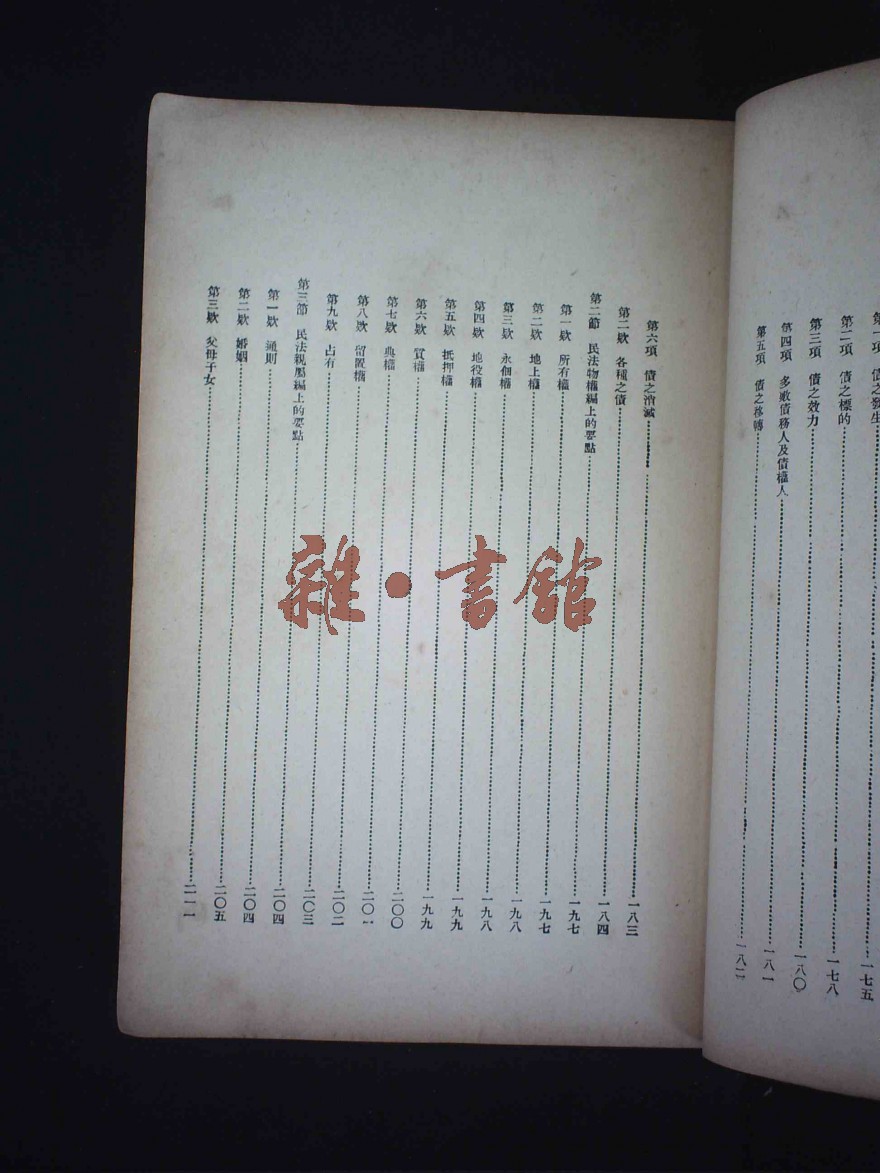 第一項 債之發生……一七五
第二項 債之標的……一七八
第三項 債之效力……一八〇
第四項 多數債務人及債權人……一八一
第五項 債之移轉……一八二
第六項 債之消滅……一八三
第二欵 各種之債……一八四
第二節 民法物權編上的要點……一九七
第一欵 所有權……一九七
第二欵 地上權……一九八
第三欵 永佃權……一九八
第四欵 地役權……一九九
第五欵 抵押權……一九九
第六欵 質權……二〇〇
第七欵 典權……二〇一
第八欵 留置權……二〇二
第九欵 占有……二〇三
第三節 民法親屬編上的要點……二〇四
第一欵 通則……二〇四
第二欵 婚姻……二〇五
第三欵 父母子女……二一一
雜·書館